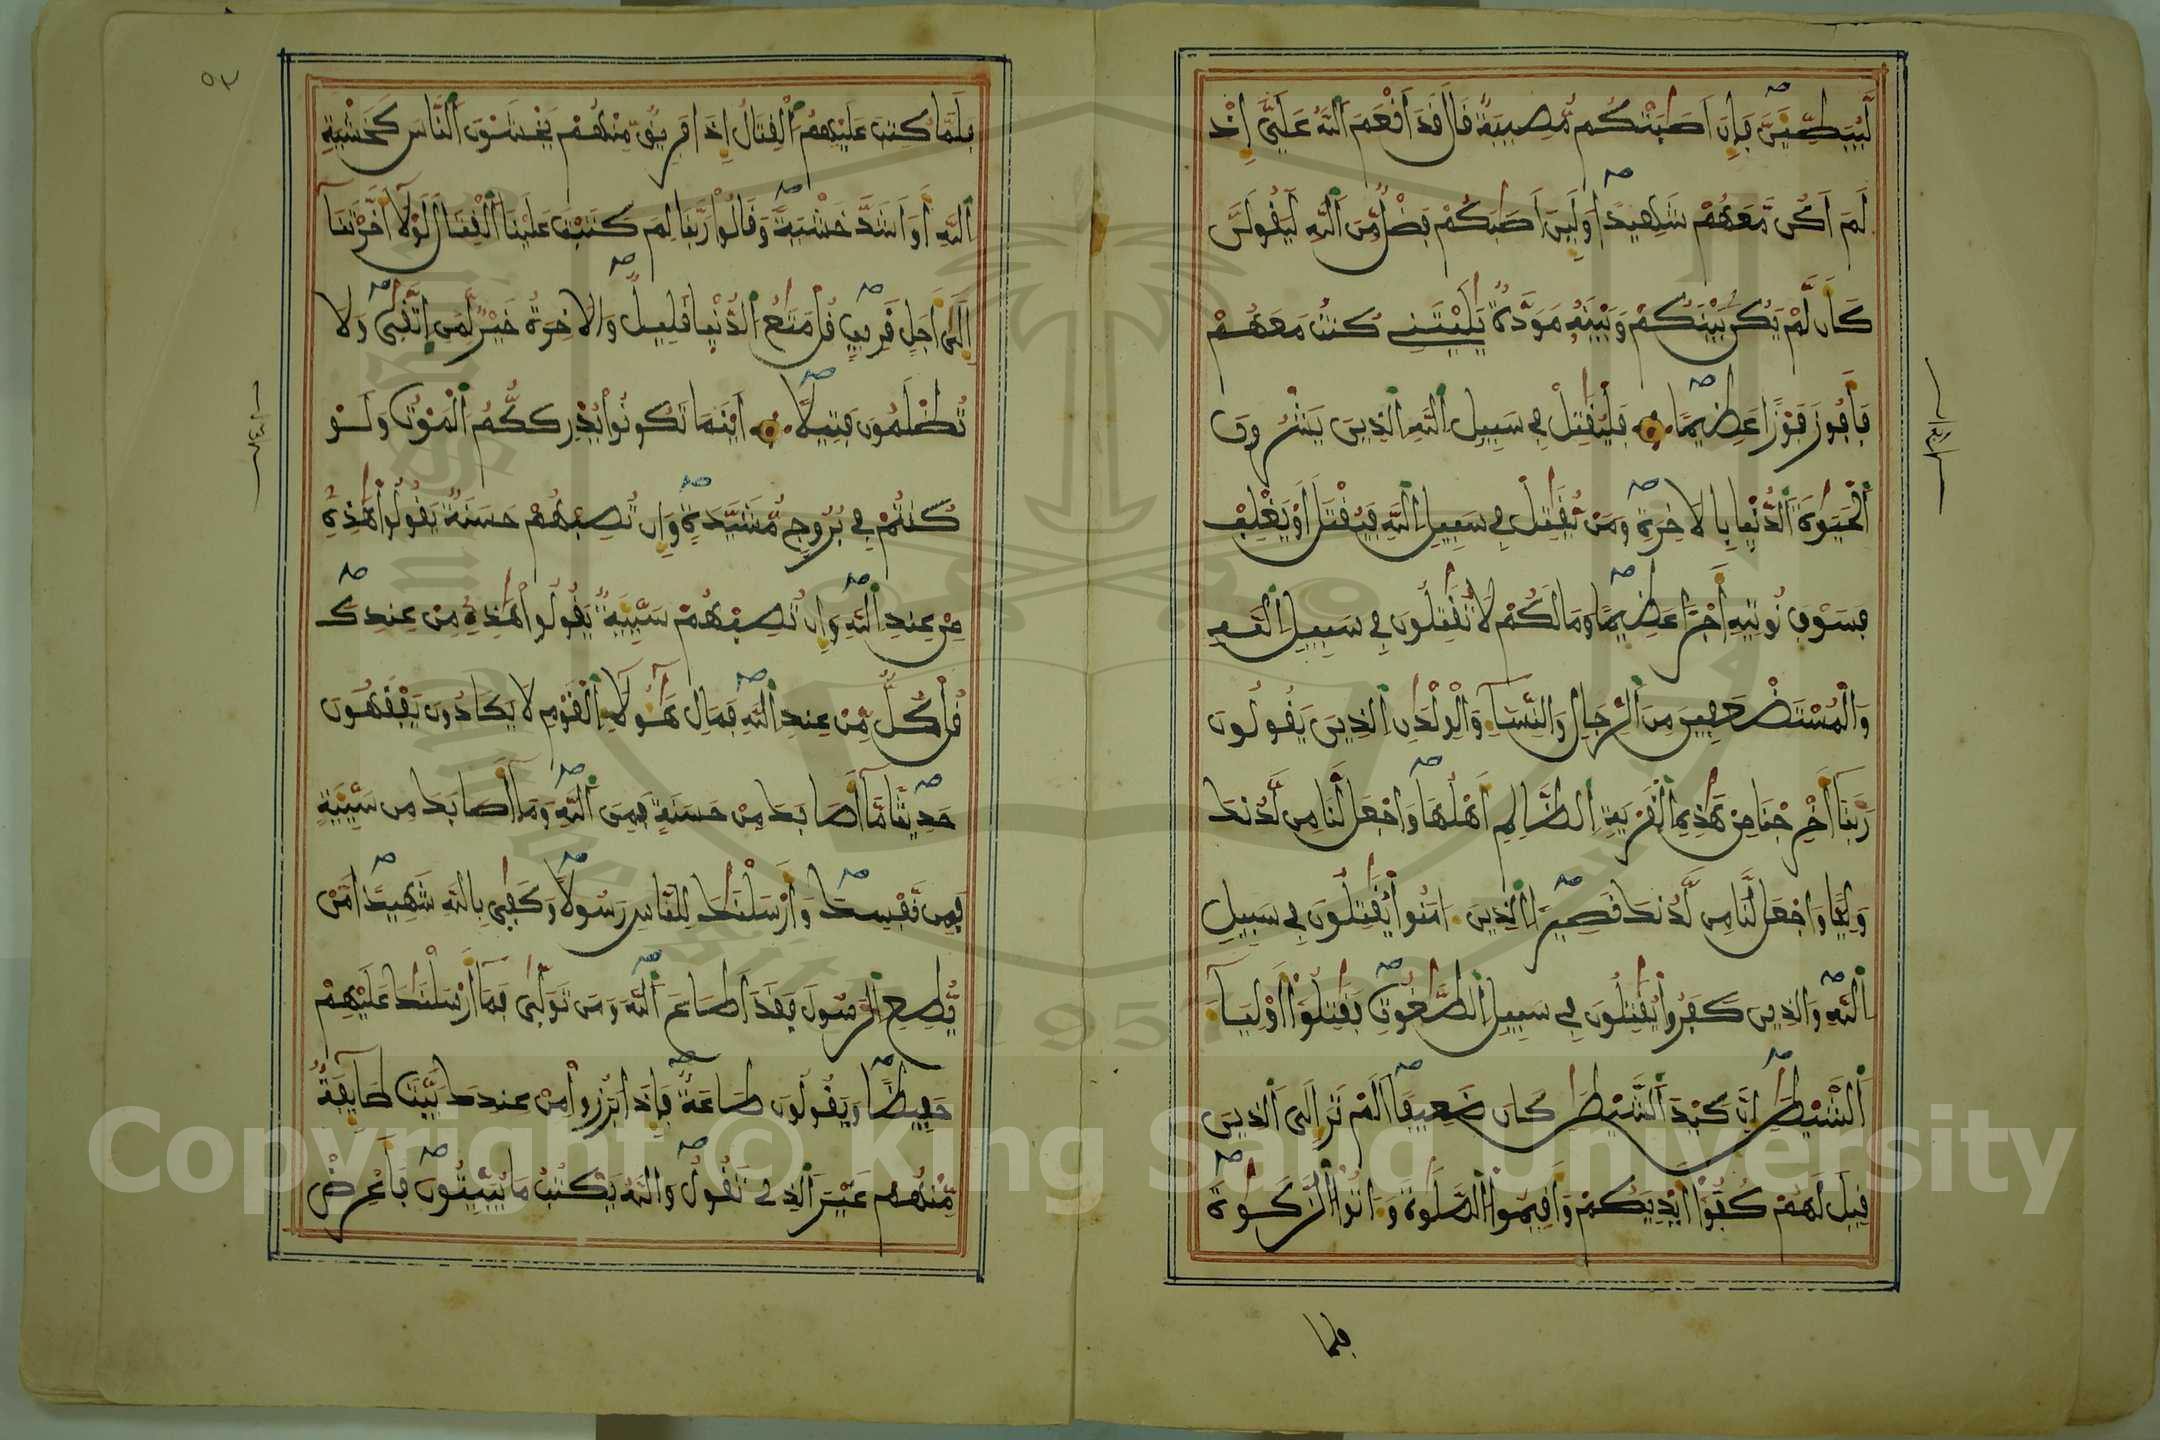 ليبطين فإن اصبتكم مصيبة قال قد أنعم الله علي إذ
لم أكن معهم شهيدا ولين اصبكم فضل من الله ليقولن
كأن لم يكن بينكم وبينه مودة يليتني كنت معهم
فأفوز فوزا عظيما فليقتل في سبيل الله الذين يشرون
الحيوة الدنيا بالاخرة ومن يقتل في سبيل الله فيقتل أو يغلب
فسوف نوتيه أجرا عظيما وما لكم لا تقتلون في سبيل الله
والمستضعفين من الرجال والنسا والولدن الذين يقولون
ربنا أخرجنا من هذه القرية الظالم أهلها واجعل لنا من لدنك
وليا واجعل لنا من لدنك نصيرا الذين امنوا يقتلون في سبيل
الله والذين كفروا يقتلون في سبيل الطغوت فقتلوا أوليا
الشيطن إن كيد الشيطن كان ضعيفا ألم تر إلى الذين
قيل لهم كفوا أيديكم وأقيموا الصلوة وءاتوا الزكوة
فلما
فلما كتب عليهم القتال إذا فريق منهم يخشون الناس كخشية
الله أو أشد خشية وقالوا ربنا لم كتبت علينا القتال لولا أخرتنا
إلى أجل قريب قل متع الدنيا قليل والاخرة خير لمن اتقى ولا
تظلمون فتيلا اينما تكونوا يدرككم الموت ولو
كنتم في بروج مشيدة وإن تصبهم حسنة يقولوا هذه
من عند الله وإن تصبهم سيية يقولوا هذه من عندك
قل كل من عند الله فمال هؤلا القوم لا يكادون يفقهون
حديثا ما أصابك من حسنة فمن الله وما أصابك من سيية
فمن نفسك وأرسلنك للناس رسولا وكفى بالله شهيدا من
يطع الرسول فقد أطاع الله ومن تولى فما أرسلنك عليهم
حفيظا ويقولون طاعة فإذا برزوا من عندك بيت طايفة
منهم غير الذي تقول والله يكتب ما يبيتون فأعرض
Copyright © King Saud University
1957